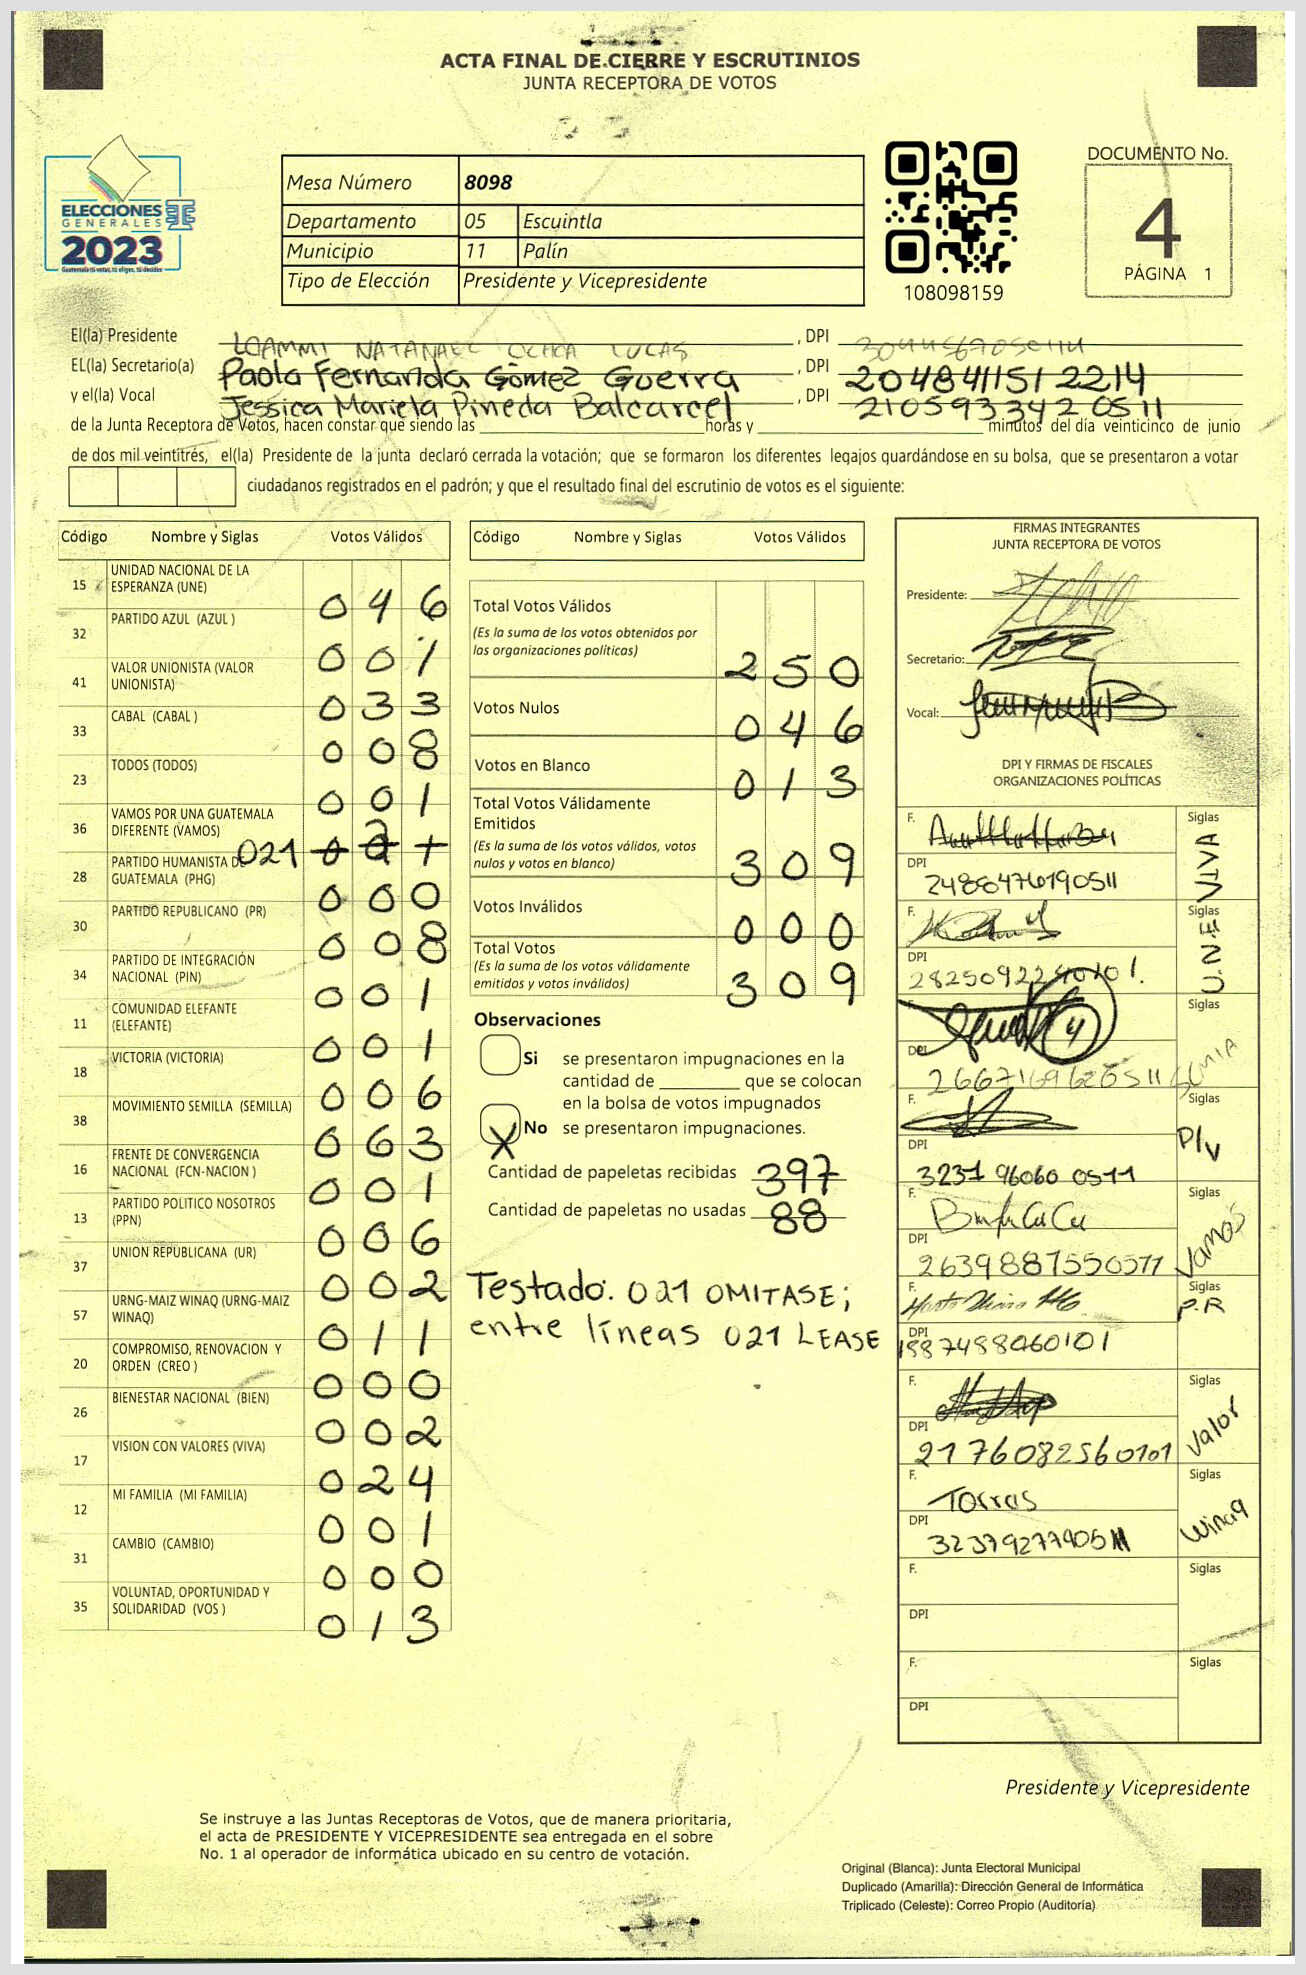 ACTA FINAL DE CIERRE Y ESCRUTINIOS
JUNTA RECEPTORA DE VOTOS
ELECCIONES
GENERALES
2023
Guatemala tú votas, tú eliges, tú decides
Mesa Número 8098
Departamento 05 Escuintla
Municipio 11 Palín
Tipo de Elección Presidente y Vicepresidente
108098159
DOCUMENTO No.
4
PÁGINA 1
El(la) Presidente LOAMMI NATANAEL OCHOA LUCAS , DPI
EL(la) Secretario(a) Paola Fernanda Gómez Guerra , DPI 2048411512214
y el(la) Vocal Jessica Mariela Pineda Balcarcel , DPI 210593342 0511
de la Junta Receptora de Votos, hacen constar que siendo las horas y minutos del día veinticinco de junio
de dos mil veintitrés, el(la) Presidente de la junta declaró cerrada la votación; que se formaron los diferentes legajos guardándose en su bolsa, que se presentaron a votar
ciudadanos registrados en el padrón; y que el resultado final del escrutinio de votos es el siguiente:
Código Nombre y Siglas Votos Válidos
15 UNIDAD NACIONAL DE LA ESPERANZA (UNE) 046
32 PARTIDO AZUL (AZUL ) 001
41 VALOR UNIONISTA (VALOR UNIONISTA) 033
33 CABAL (CABAL ) 008
23 TODOS (TODOS) 001
36 VAMOS POR UNA GUATEMALA DIFERENTE (VAMOS) 021 021
28 PARTIDO HUMANISTA DE GUATEMALA (PHG) 000
30 PARTIDO REPUBLICANO (PR) 008
34 PARTIDO DE INTEGRACIÓN NACIONAL (PIN) 001
11 COMUNIDAD ELEFANTE (ELEFANTE) 001
18 VICTORIA (VICTORIA) 006
38 MOVIMIENTO SEMILLA (SEMILLA) 063
16 FRENTE DE CONVERGENCIA NACIONAL (FCN-NACION ) 001
13 PARTIDO POLITICO NOSOTROS (PPN) 006
37 UNION REPUBLICANA (UR) 002
57 URNG-MAIZ WINAQ (URNG-MAIZ WINAQ) 011
20 COMPROMISO, RENOVACION Y ORDEN (CREO ) 000
26 BIENESTAR NACIONAL (BIEN) 002
17 VISION CON VALORES (VIVA) 024
12 MI FAMILIA (MI FAMILIA) 001
31 CAMBIO (CAMBIO) 000
35 VOLUNTAD, OPORTUNIDAD Y SOLIDARIDAD (VOS ) 013
Código Nombre y Siglas Votos Válidos
Total Votos Válidos 250
(Es la suma de los votos obtenidos por
las organizaciones políticas)
Votos Nulos 046
Votos en Blanco 013
Total Votos Válidamente
Emitidos
(Es la suma de lós votos válidos, votos
nulos y votos en blanco) 309
Votos Inválidos 000
Total Votos
(Es la suma de los votos válidamente
emitidos y votos inválidos) 309
Observaciones
Si se presentaron impugnaciones en la
cantidad de que se colocan
en la bolsa de votos impugnados
X No se presentaron impugnaciones.
Cantidad de papeletas recibidas 397
Cantidad de papeletas no usadas 88
Testado: 021 OMITASE;
entre líneas 021 LEASE
FIRMAS INTEGRANTES
JUNTA RECEPTORA DE VOTOS
Presidente:
Secretario:
Vocal:
DPI Y FIRMAS DE FISCALES
ORGANIZACIONES POLÍTICAS
F. Siglas VIVA
DPI 2488476190511
F. Siglas U.N.E
DPI 2825092240101.
F. Siglas
DPI
F. Siglas P/V
DPI 3231 96060 0511
F. Siglas Vamos
DPI 2639887550511
F. Siglas P.R
DPI 1887488060101
F. Siglas Valor
DPI 2176082560101
F. Torres Siglas Winaq
DPI
F. Siglas
DPI
F. Siglas
DPI
Presidente y Vicepresidente
Se instruye a las Juntas Receptoras de Votos, que de manera prioritaria,
el acta de PRESIDENTE Y VICEPRESIDENTE sea entregada en el sobre
No. 1 al operador de informática ubicado en su centro de votación.
Original (Blanca): Junta Electoral Municipal
Duplicado (Amarilla): Dirección General de Informática
Triplicado (Celeste): Correo Propio (Auditoría)